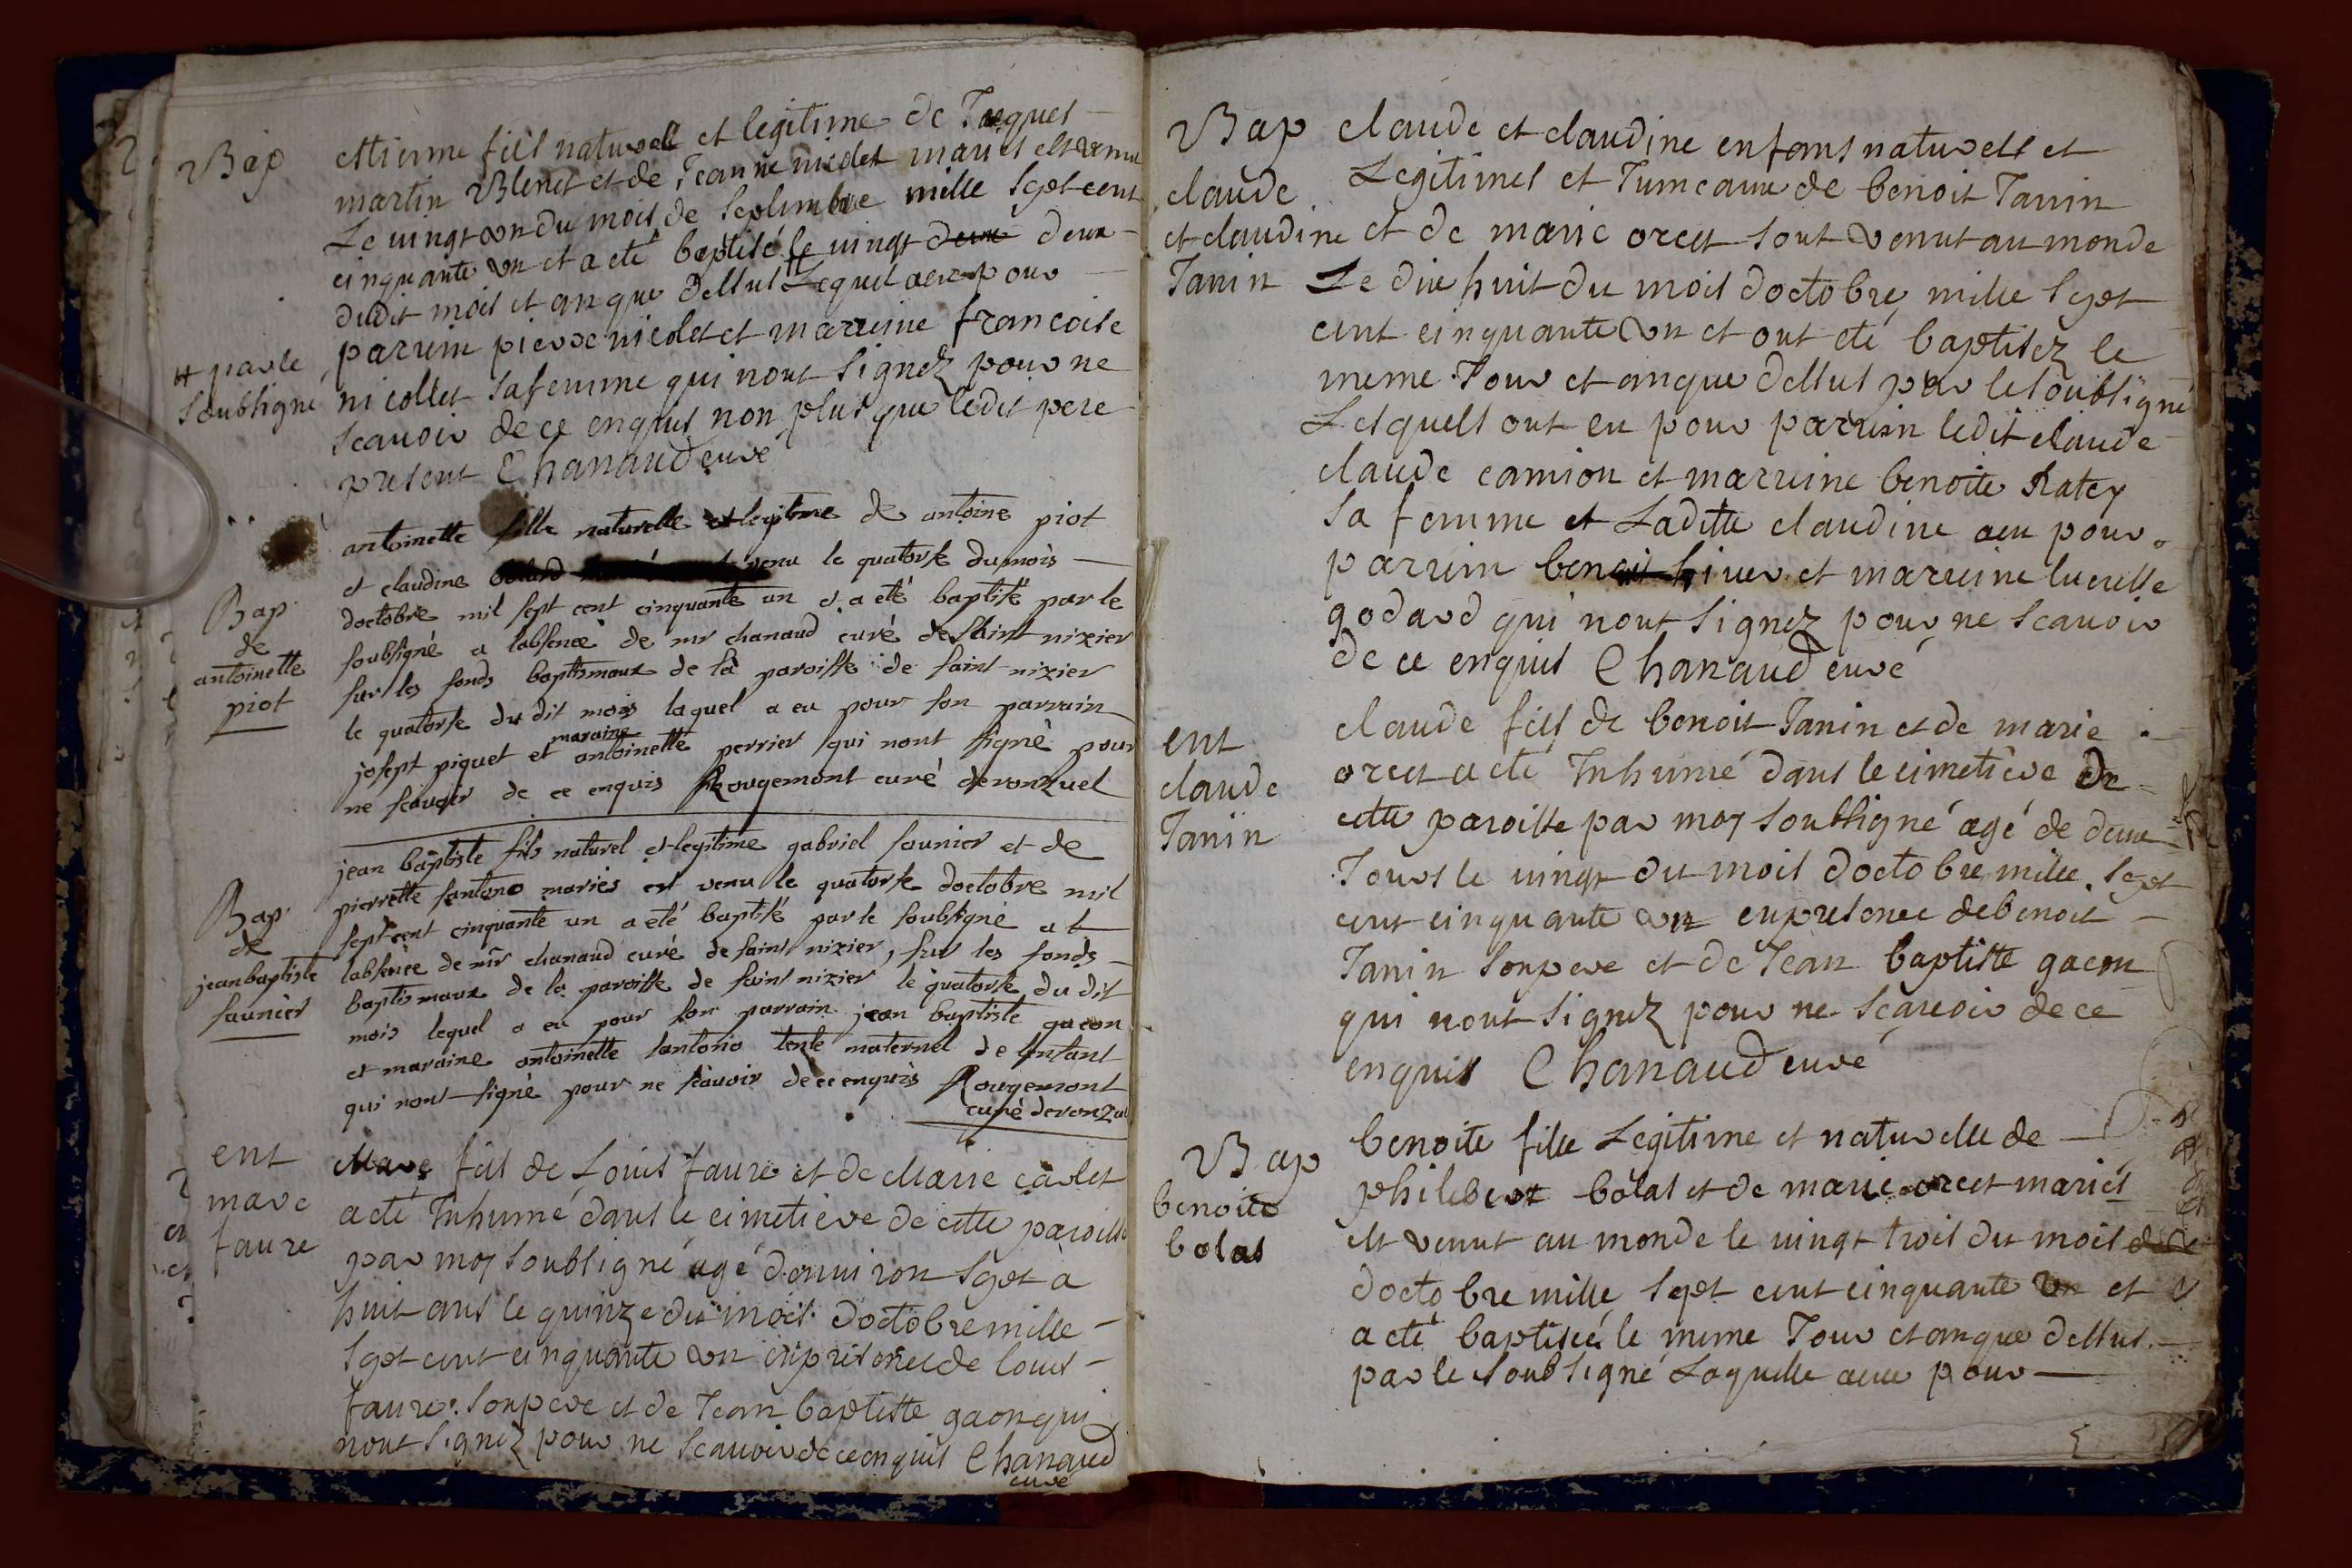 Bap
ettienne fils naturell et legitime de Jacques
martin Blenet et de Jeanne nicolet mariés est venu
Le vingt un du mois de Septembre mille Sept cent
cinquante un et a eté baptisé le vingt deux deux
dudit mois et an que dessus Lequel a eu pour
parrein pierre nicolet et marreine francoise
nicollet sa femme qui nont Signéz pour ne
Scavoir de ce enquis non plus que ledit pere
present Chanaud curé
# par le
Soubsigné
Bap
de
antoinette
piot
antoinette fille naturelle et legitime de antoine piot
et claudine venu le quatorse du mois
doctobre mil sept cent cinquante un et a eté baptisé par le
soubsigné a labsence de mr chanaud curé de Saint nixier
sur les fonds baptismaux de la paroisse de saint nixier
le quatorse du dit mois laquel a eu pour son parrain
maraine
josept piquet et antoinette perrier qui nont signé pour
ne scavoir de ce enquis Rougemont curé deronzuel
Bap
de
jean baptiste
saunier
jean baptiste fils naturel et legitime gabriel saunier et de
pierrette santono mariés est venu le quatorse doctobre mil
sept cent cinquante un a eté baptisé par le soubsigné a
labsence de mr chanaud curé de saint nixier, sur les fonds
baptismaux de la paroisse de saint nixier le quatorse du dit
mois lequel a eu pour son parrain jean baptiste gacon
et maraine antoinette santonio tente maternel de lenfant
qui nont signé pour ne scavoir de ce enquis Rougemont
curé deronzuel
ent
marc
faure
Marc fils de Louis faure et de Marie carlet
a eté Inhumé dans le cimetiere de cette paroisse
par moy soubsigné agé denviron Sept a
huit ans le quinze du mois doctobre mille
Sept cent cinquante un en presence de louis
faure son pere et de Jean baptiste gacon qui
nont Signéz pour ne Scavoir de ce enquis Chanaud
curé
Bap
claude
et claudine
Janin
claude et claudine enfans naturells et
Legitimes et Jumeaux de benoit Janin
et de marie orcet sont venut au monde
Le dix huit du mois doctobre mille Sept
cent cinquante un et ont eté baptisez le
meme Jour et an que dessus par le soubsigné
Lesquells ont eu pour parrein ledit claude
claude camion et marreine benoite Ratey
sa femme et Laditte claudine a eu pour
parrein benoit hiver et marreine lucresse
godard qui nont Signez pour ne Scavoir
de ce enquis Chanaud curé
ent
claude
Janin
claude fils de benoit Janin et de marie
orcet a eté Inhumé dans le cimetiere de
cette paroisse par moy soubsigné agé de deux
Jours le vingt du mois doctobre mille Sept
cent cinquante un en presence de benoit
Janin son pere et de Jean baptiste gacon
qui nont Signez pour ne Scavoir de ce
enquis Chanaud curé
Bap
benoite
bolas
benoite fille Legitime et naturelle de
philibert bolas et de marie orcet mariés
est venut au monde le vingt trois du mois
doctobre mille Sept cent cinquante un et
a eté baptiseé le meme Jour et an que dessus
par le soubsigné Laquelle a eue pour